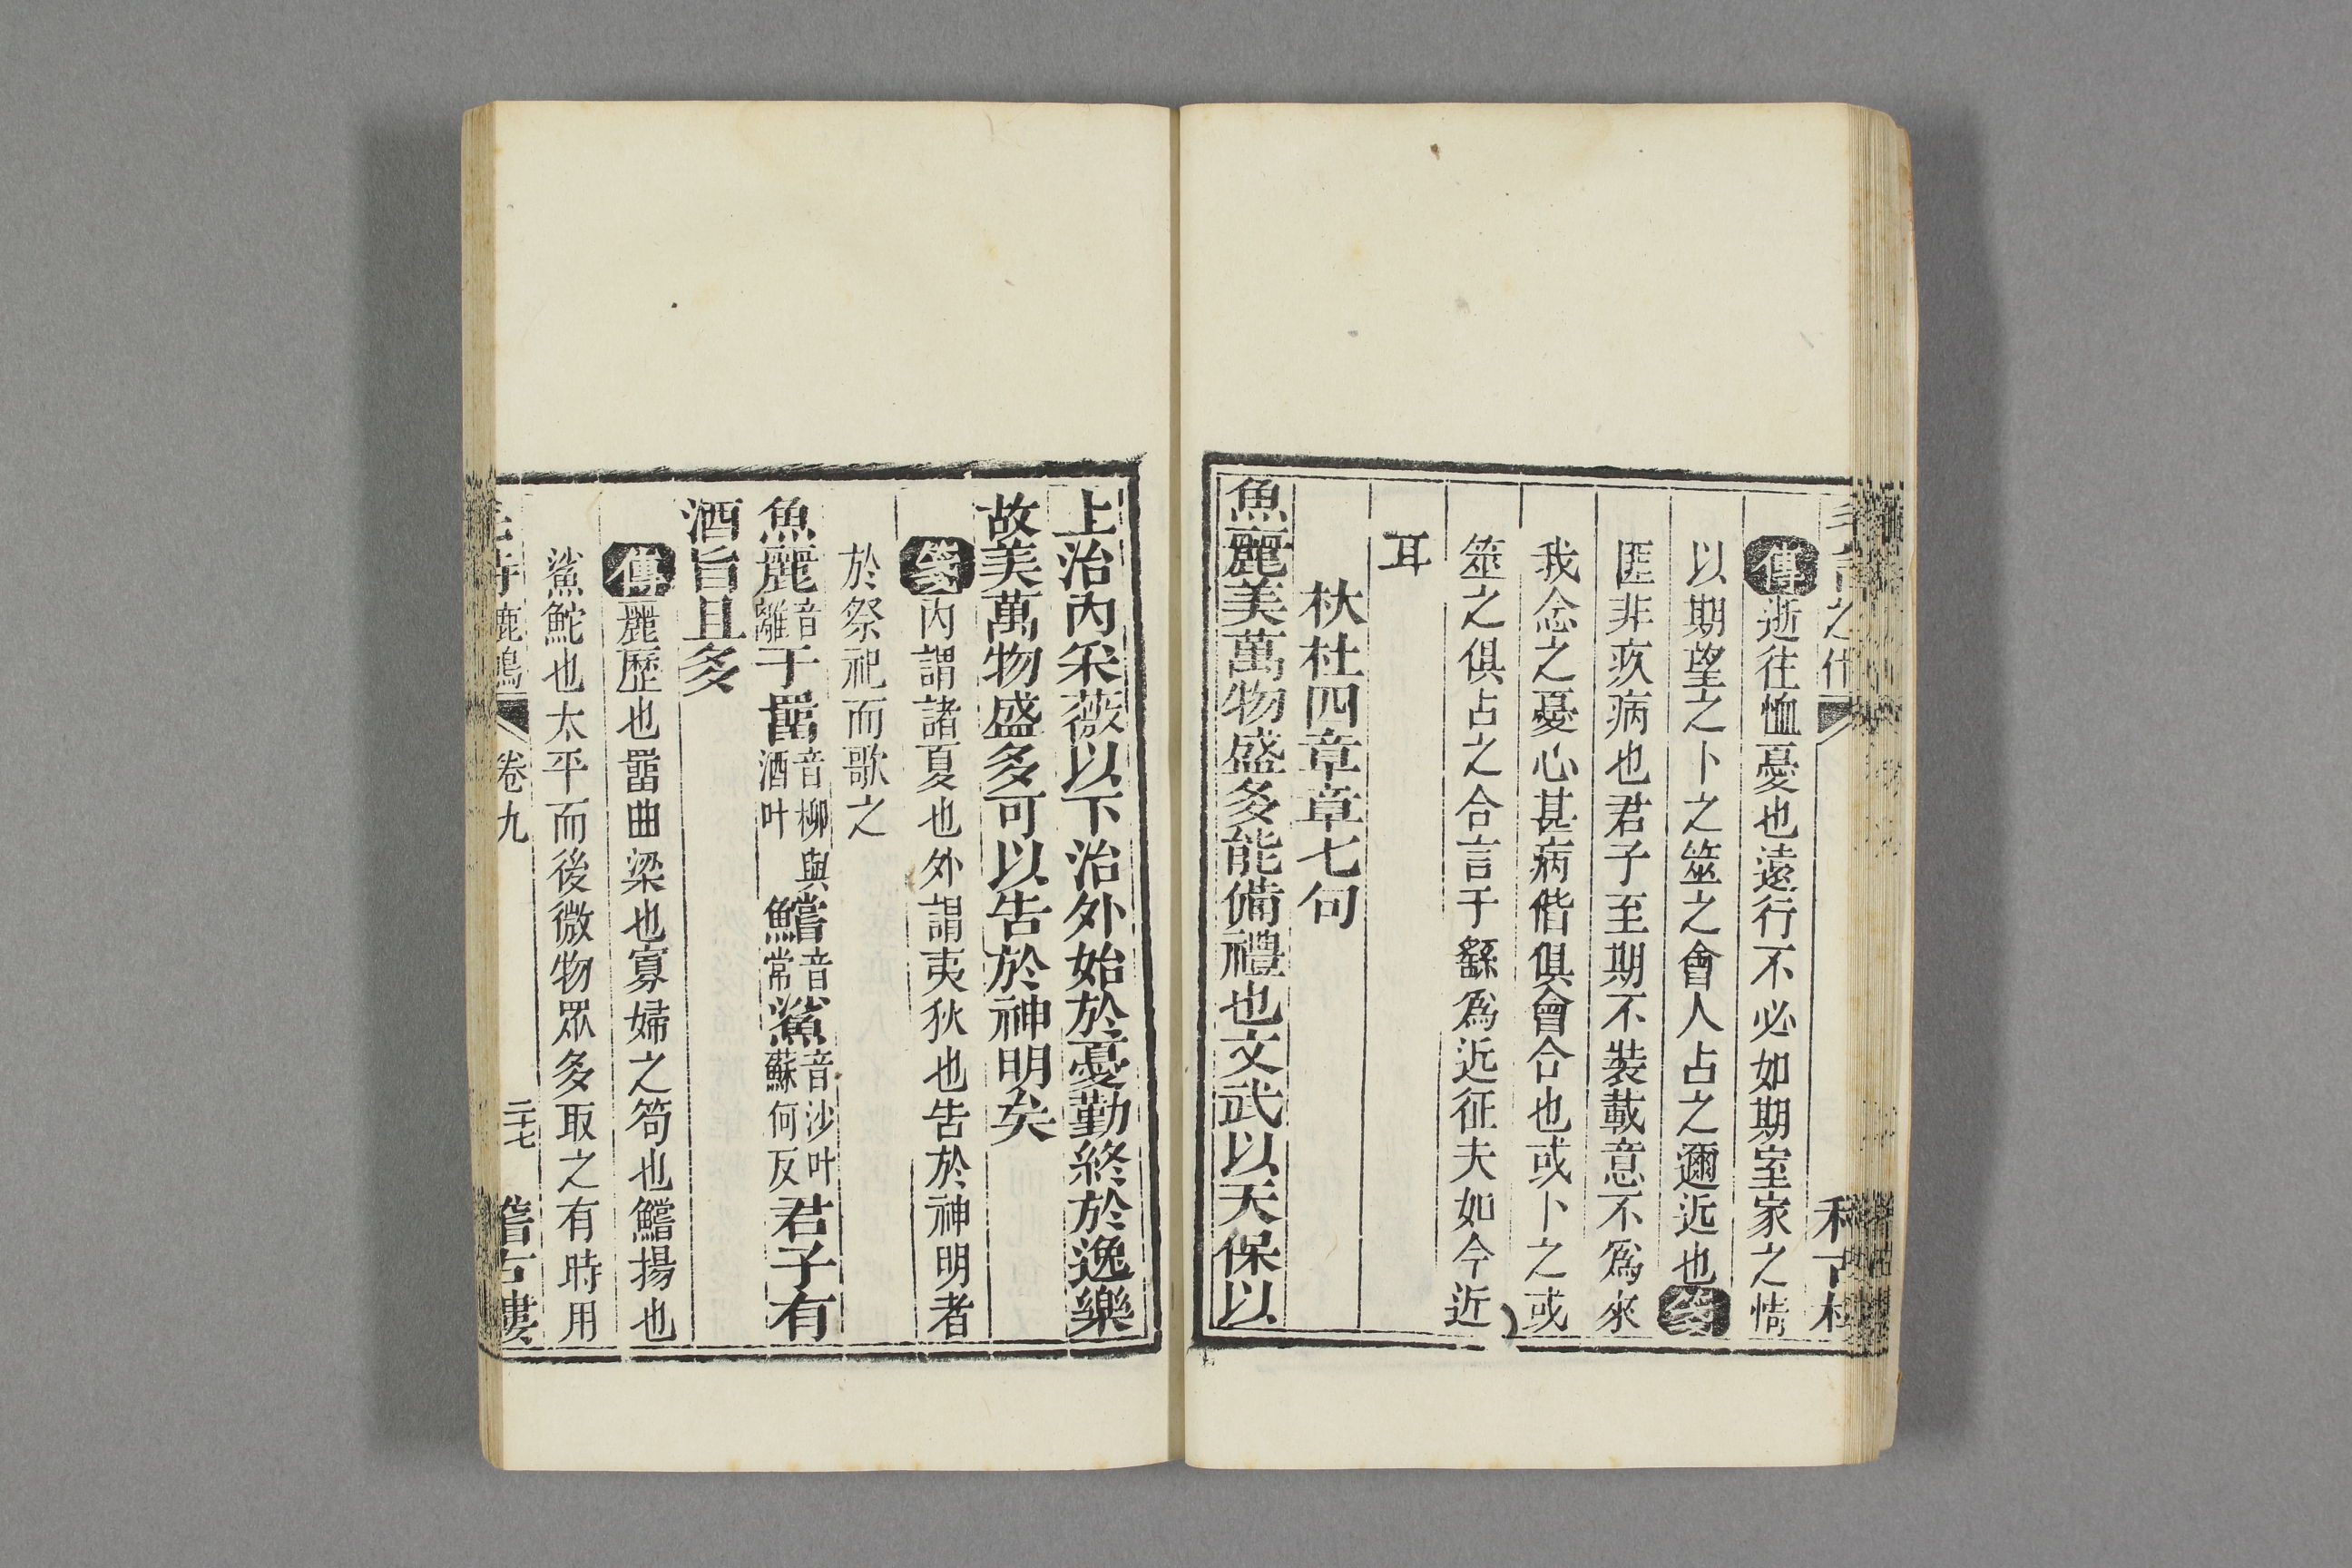 傳逝往恤憂也遠行不必如期室家之情
以期望之卜之筮之會人占之邇近也箋
匪非疚病也君子至期不裝載意不爲來
我念之憂心甚病偕俱會合也或卜之或
筮之俱占之合言于繇爲近征夫如今近
耳
杕杜四章章七句
魚麗美萬物盛多能備禮也文武以天保以
上治內采薇以下治外始於憂勤終於逸樂
故美萬物盛多可以告於神明矣
箋內謂諸夏也外謂夷狄也告於神明者
於祭祀而歌之
魚麗音離于罶音柳與酒叶鱨音常鯊音沙叶蘇何反君子有
酒旨且多
傳麗歷也罶曲梁也寡婦之笱也鱨揚也
鯊鮀也太平而後微物眾多取之有時用
毛詩鹿鳴 卷九 二十七 稽古樓